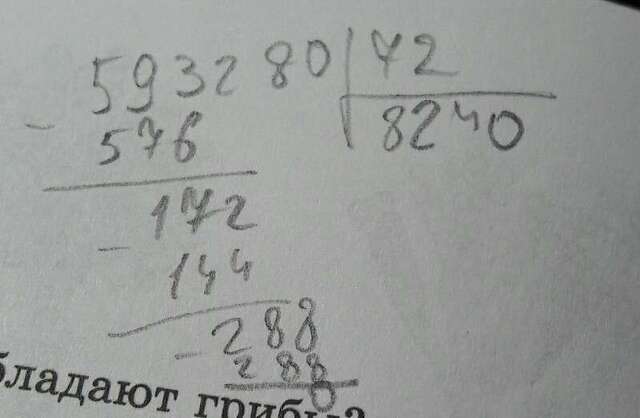 593280 72
- 576 8240
172
- 144
288
- 288
0
бладают грибы?